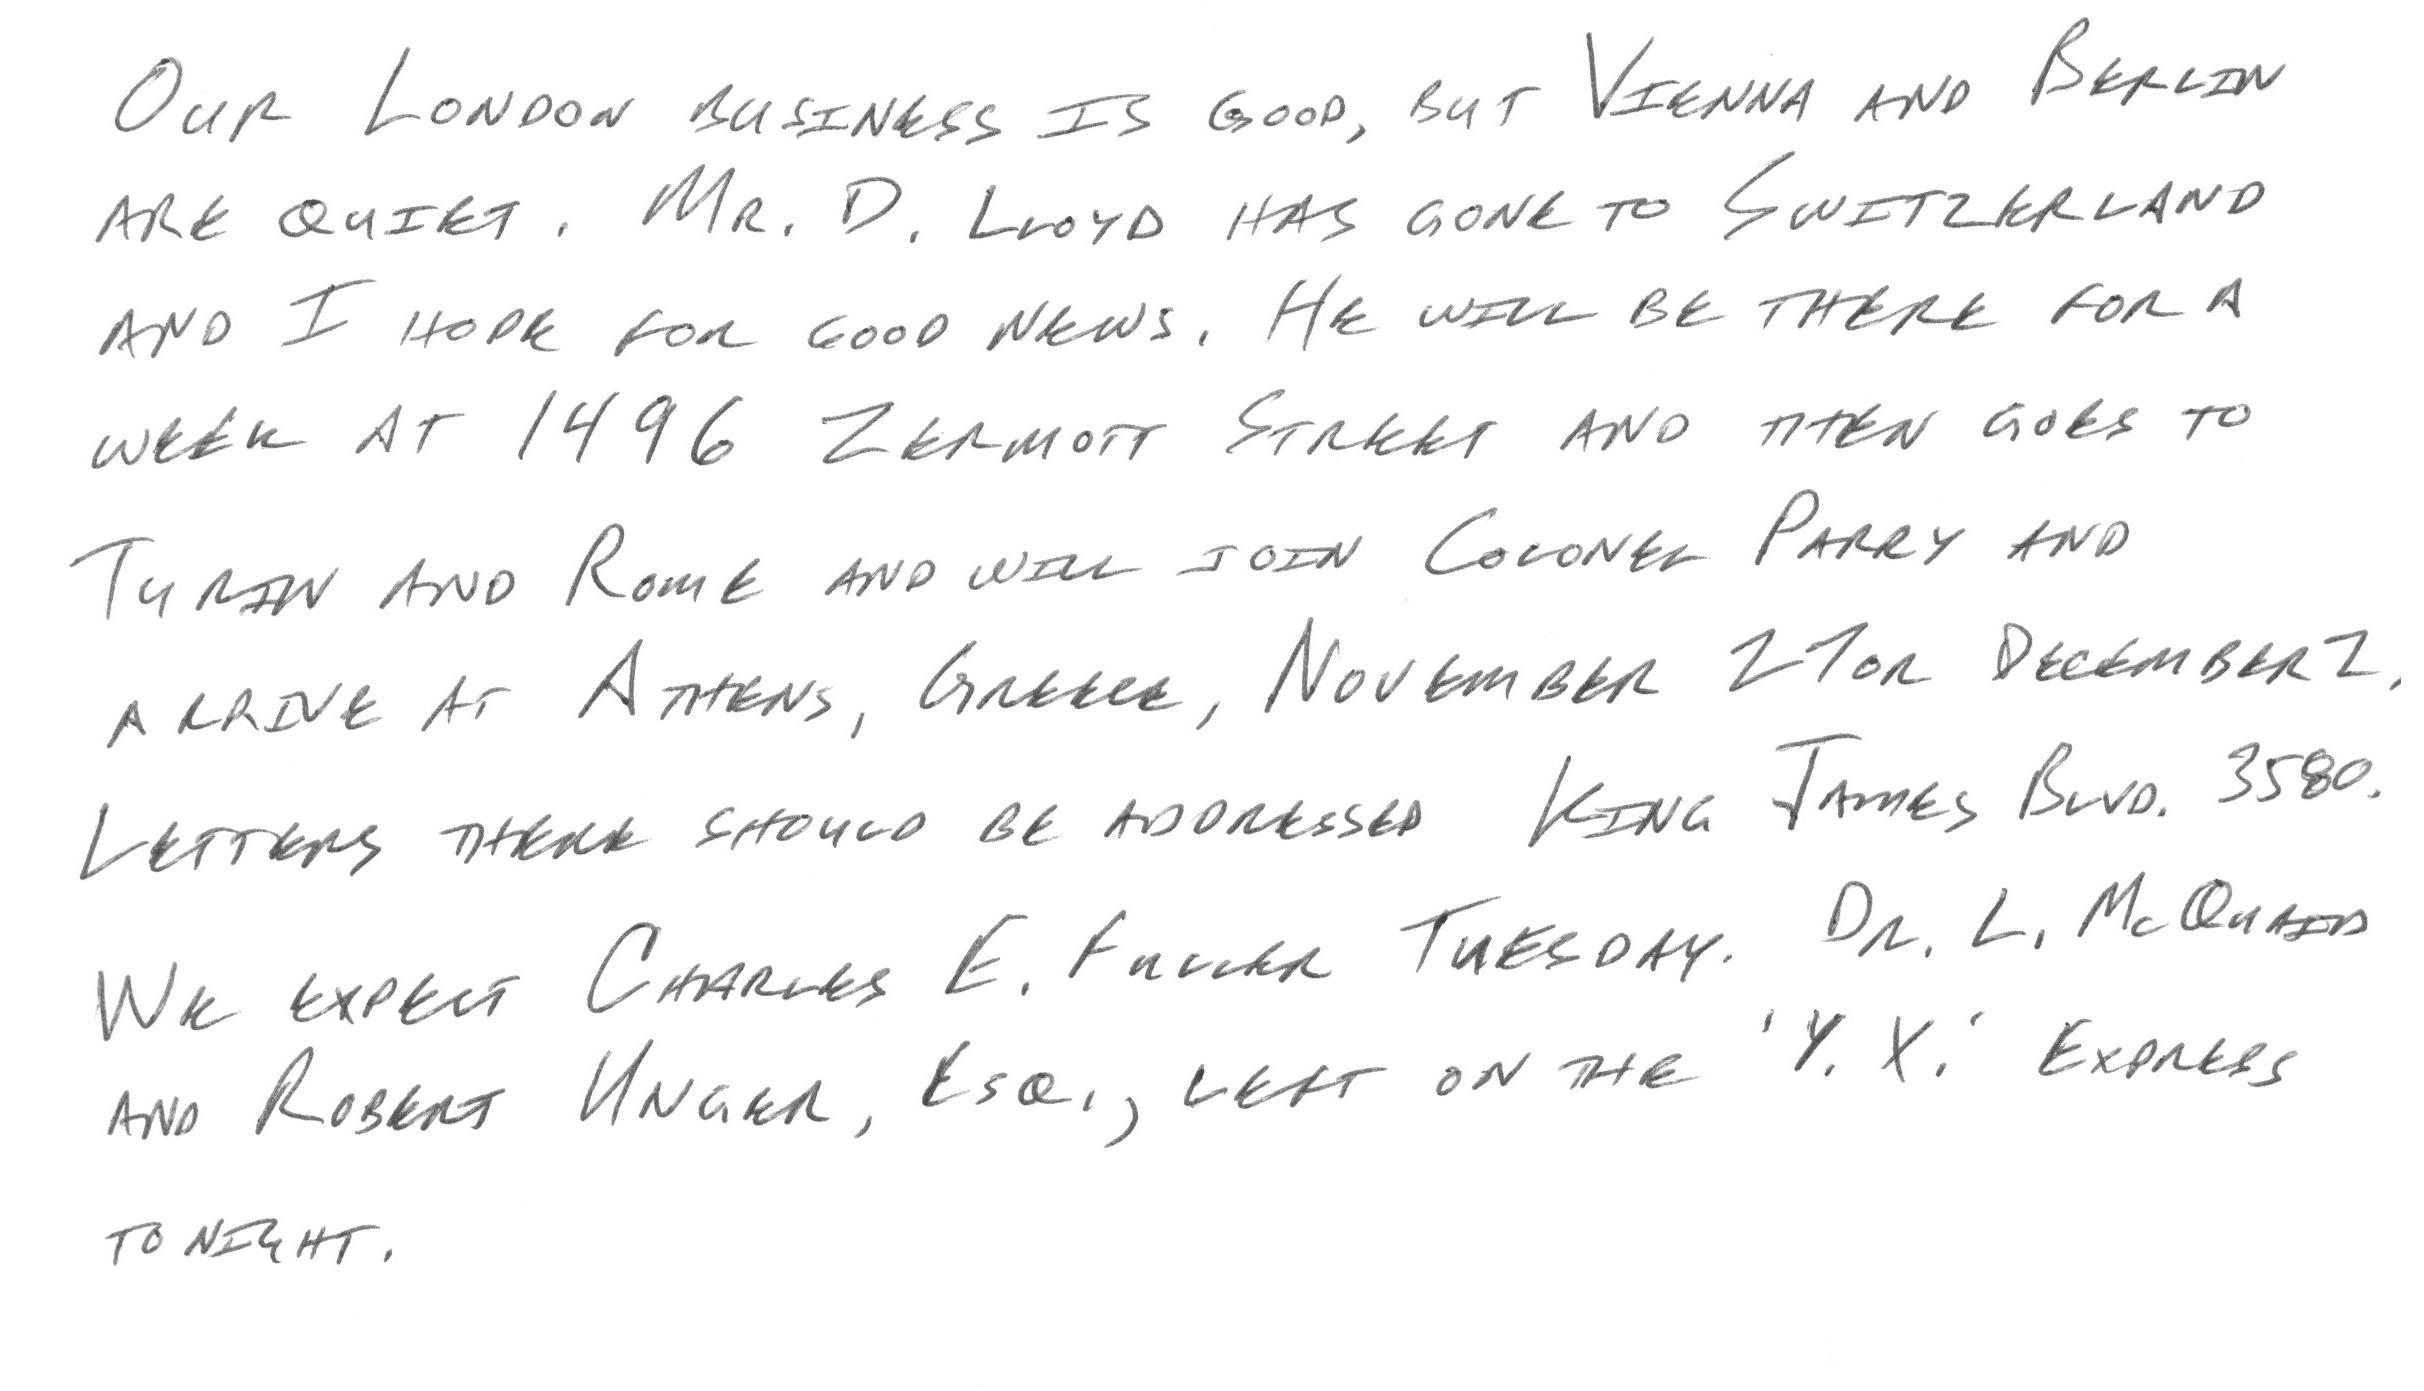 Our London business is good, but Vienna and Berlin
are quiet. Mr. D. Lloyd has gone to Switzerland
and I hope for good news. He will be there for a
week at 1496 Zermott Street and then goes to
Turin and Rome and will join Colonel Parry and
arrive at Athens, Greece, November 27 or December 2.
Letters there should be addressed King James Blvd. 3580.
We expect Charles E. Fuller Tuesday. Dr. L. McQuaid
and Robert Unger, Esq., left on the 'Y. X.' Express
tonight.